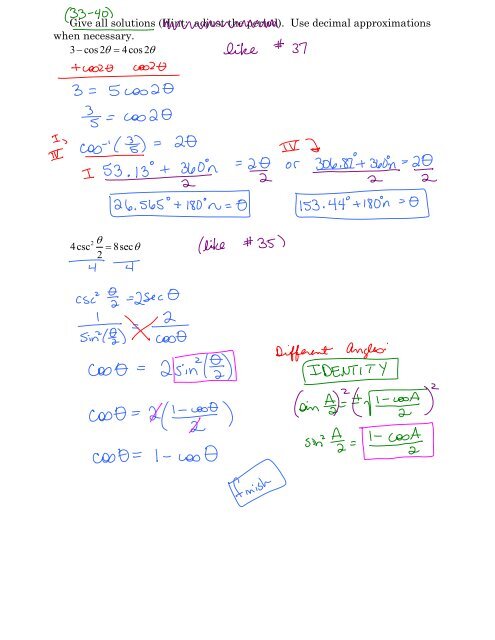 (33-40)
Give all solutions (Hint, adjust the period). Use decimal approximations
when necessary.
3 – cos 2θ = 4 cos 2θ like # 37
+cos2θ cos2θ
3 = 5cos2θ
3/5 = cos2θ
I, IV cos⁻¹(3/5) = 2θ IV
I 53.13° + 360°n / 2 = 2θ / 2 or 306.87° + 360°n / 2 = 2θ / 2
26.565° + 180°n = θ 153.44° + 180°n = θ
4 csc² θ/2 = 8 sec θ (like # 35)
4 4
csc² θ/2 = 2 sec θ
1 / sin²(θ/2) = 2 / cosθ
cosθ = 2 sin²(θ/2)
cosθ = 2(1 - cosθ / 2)
cosθ = 1 - cosθ
finish
Different Angles:
IDENTITY
(sin A/2)² = (±√(1 - cosA / 2))²
sin² A/2 = 1 - cosA / 2